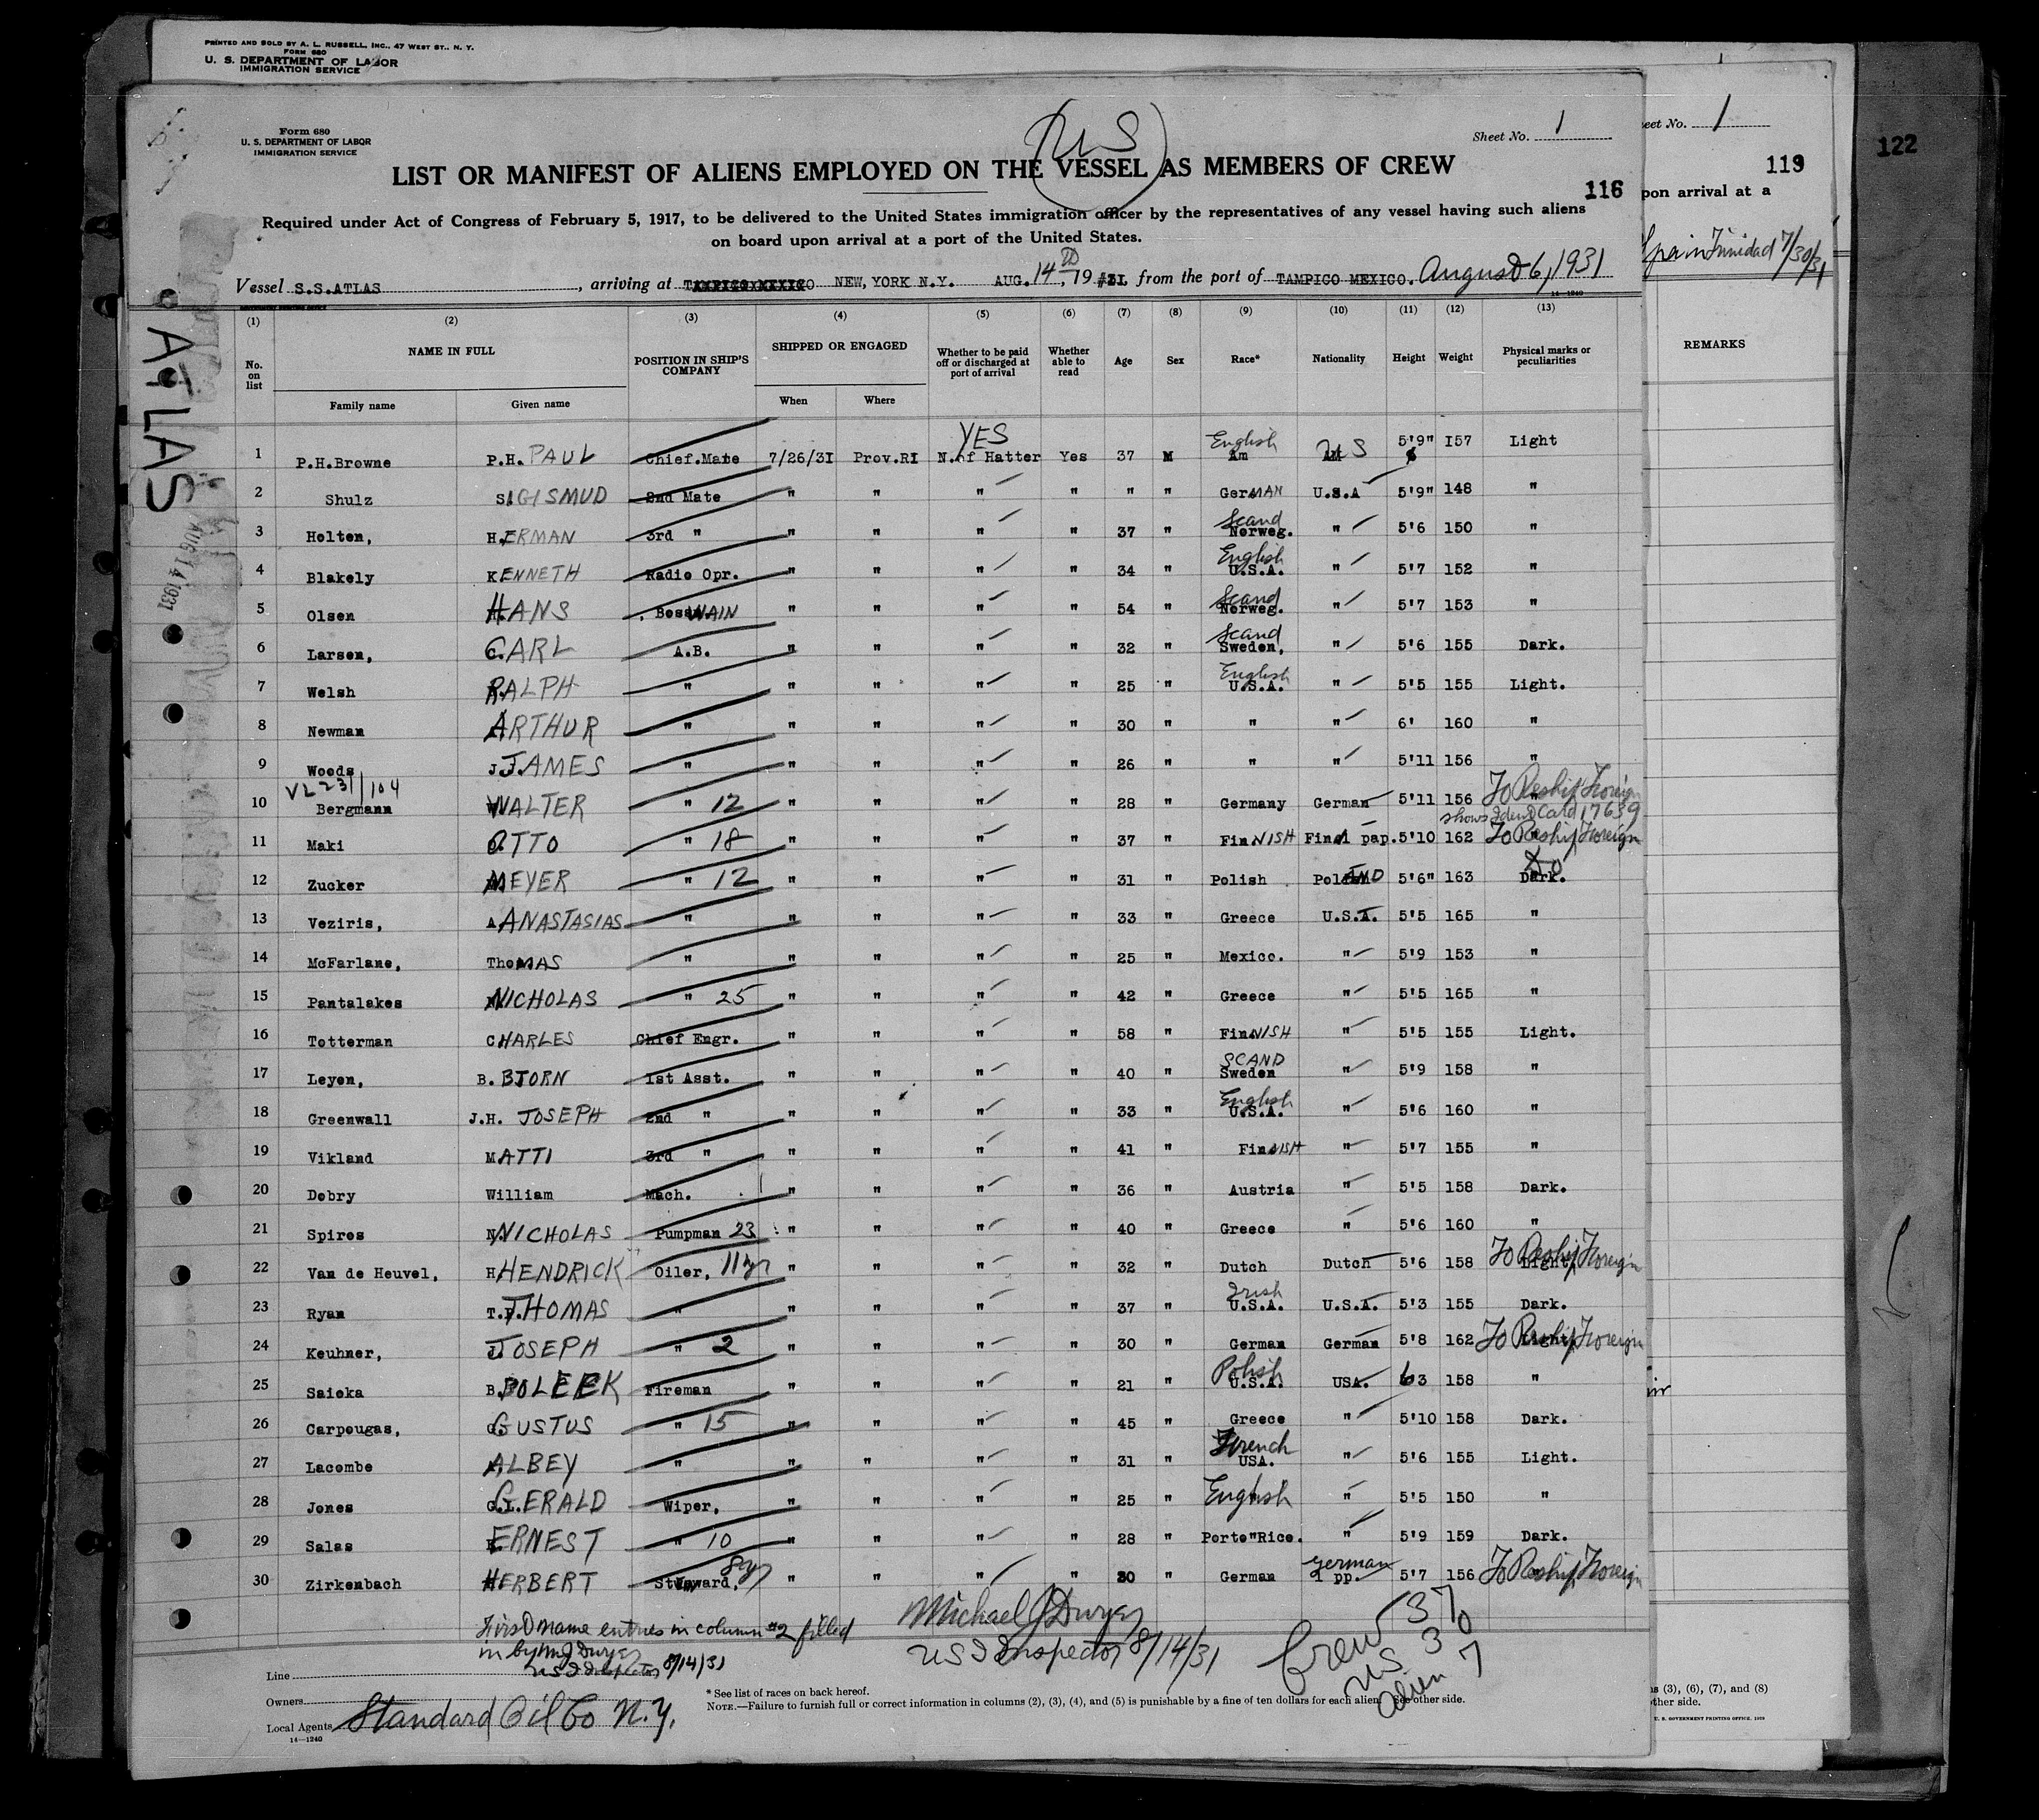 PRINTED AND SOLD BY A. L. RUSSELL, INC., 47 WEST ST., N. Y.
FORM 680
U. S. DEPARTMENT OF LABOR
IMMIGRATION SERVICE
Form 680
U. S. DEPARTMENT OF LABOR
IMMIGRATION SERVICE
(US)
Sheet No. 1
Sheet No. 1
LIST OR MANIFEST OF ALIENS EMPLOYED ON THE VESSEL AS MEMBERS OF CREW
116
119
122
Required under Act of Congress of February 5, 1917, to be delivered to the United States immigration officer by the representatives of any vessel having such aliens
on board upon arrival at a port of the United States.
pon arrival at a
Spain Trinidad 7/30/31
Vessel S.S.ATLAS, arriving at NEW, YORK N.Y. AUG. 14, 1931 from the port of TAMPICO MEXICO. August 6, 1931
14—1240
ATLAS
AUG 14 1931
(1) (2) (3) (4) (5) (6) (7) (8) (9) (10) (11) (12) (13)
No. on list NAME IN FULL Family name Given name POSITION IN SHIP'S COMPANY SHIPPED OR ENGAGED When Where Whether to be paid off or discharged at port of arrival Whether able to read Age Sex Race* Nationality Height Weight Physical marks or peculiarities
REMARKS
1 P.H.Browne P.H. PAUL Chief.Mate 7/26/3I Prov.RI YES N.of Hatter Yes 37 M English Am US 5'9" I57 Light
2 Shulz SIGISMUD 2nd Mate " " " " " " GerMAN U.S.A 5'9" 148 "
3 Holten, HERMAN 3rd " " " " " 37 " Scand Norweg. " 5'6 150 "
4 Blakely KENNETH Radio Opr. " " " " 34 " English U.S.A. " 5'7 152 "
5 Olsen HANS BosSWAIN " " " " 54 " Scand Norweg. " 5'7 153 "
6 Larsen, CARL A.B. " " " " 32 " Scand Sweden, " 5'6 155 Dark.
7 Welsh RALPH " " " " " 25 " English U.S.A. " 5'5 155 Light.
8 Newman ARTHUR " " " " " 30 " " " 6' 160 "
9 Woods J.JAMES " " " " " 26 " " " 5'11 156 "
VL 231/104
10 Bergmann WALTER " 12 " " " " 28 " Germany German 5'11 156 " To Reship Foreign
shows Ident Card 17639
11 Maki OTTO " 18 " " " " 37 " FinNISH Fin 1 pap. 5'10 162 " To Reship Foreign
12 Zucker MEYER " 12 " " " " 31 " Polish PolAND 5'6" 163 Dark. Do
13 Veziris, A ANASTASIAS " " " " " 33 " Greece U.S.A. 5'5 165 "
14 McFarlane, ThoMAS " " " " " 25 " Mexico. " 5'9 153 "
15 Pantalakes NICHOLAS " 25 " " " " 42 " Greece " 5'5 165 "
16 Totterman CHARLES Chief Engr. " " " " 58 " FinNISH " 5'5 155 Light.
17 Leyen, B. BJORN 1st Asst. " " " " 40 " SCAND Sweden " 5'9 158 "
18 Greenwall J.H. JOSEPH 2nd " " " " " 33 " English U.S.A. " 5'6 160 "
19 Vikland MATTI 3rd " " " " " 41 " FinNISH " 5'7 155 "
20 Debry William Mach. " " " " 36 " Austria " 5'5 158 Dark.
21 Spiros N.NICHOLAS Pumpman 23 " " " " 40 " Greece " 5'6 160 "
22 Van de Heuvel, H HENDRICK Oiler, 11 yr " " " " 32 " Dutch Dutch 5'6 158 Light, To Reship Foreign
23 Ryan T.F.THOMAS " " " " " 37 " Irish U.S.A. U.S.A. 5'3 155 Dark.
24 Keuhner, JOSEPH " 2 " " " " 30 " German German 5'8 162 Light, To Reship Foreign
25 Saioka B.BOLEEK Fireman " " " " 21 " Polish U.S.A. USA. 63 158 "
26 Carpougas, GUSTUS " 15 " " " " 45 " Greece " 5'10 158 Dark.
27 Lacombe ALBEY " " " " " 31 " French USA. " 5'6 155 Light.
28 Jones G.L.GERALD Wiper, " " " " 25 " English " 5'5 150 "
29 Salas ERNEST " 10 " " " " 28 " Porto"Rico. " 5'9 159 Dark.
30 Zirkenbach HERBERT Steward, 8 yr " " " " 30 " German german 1 pp. 5'7 156 To Reship Foreign
First name entries in column #2 filled
in by M J Dwyer
US I Inspector 8/14/31
Michael J Dwyer
US I Inspector 8/14/31
Crew 37
US 30
alien 7
Line
Owners
Local Agents Standard Oil Co N.Y.
14—1240
* See list of races on back hereof.
NOTE.—Failure to furnish full or correct information in columns (2), (3), (4), and (5) is punishable by a fine of ten dollars for each alien. See other side.
s (3), (6), (7), and (8)
other side.
U. S. GOVERNMENT PRINTING OFFICE